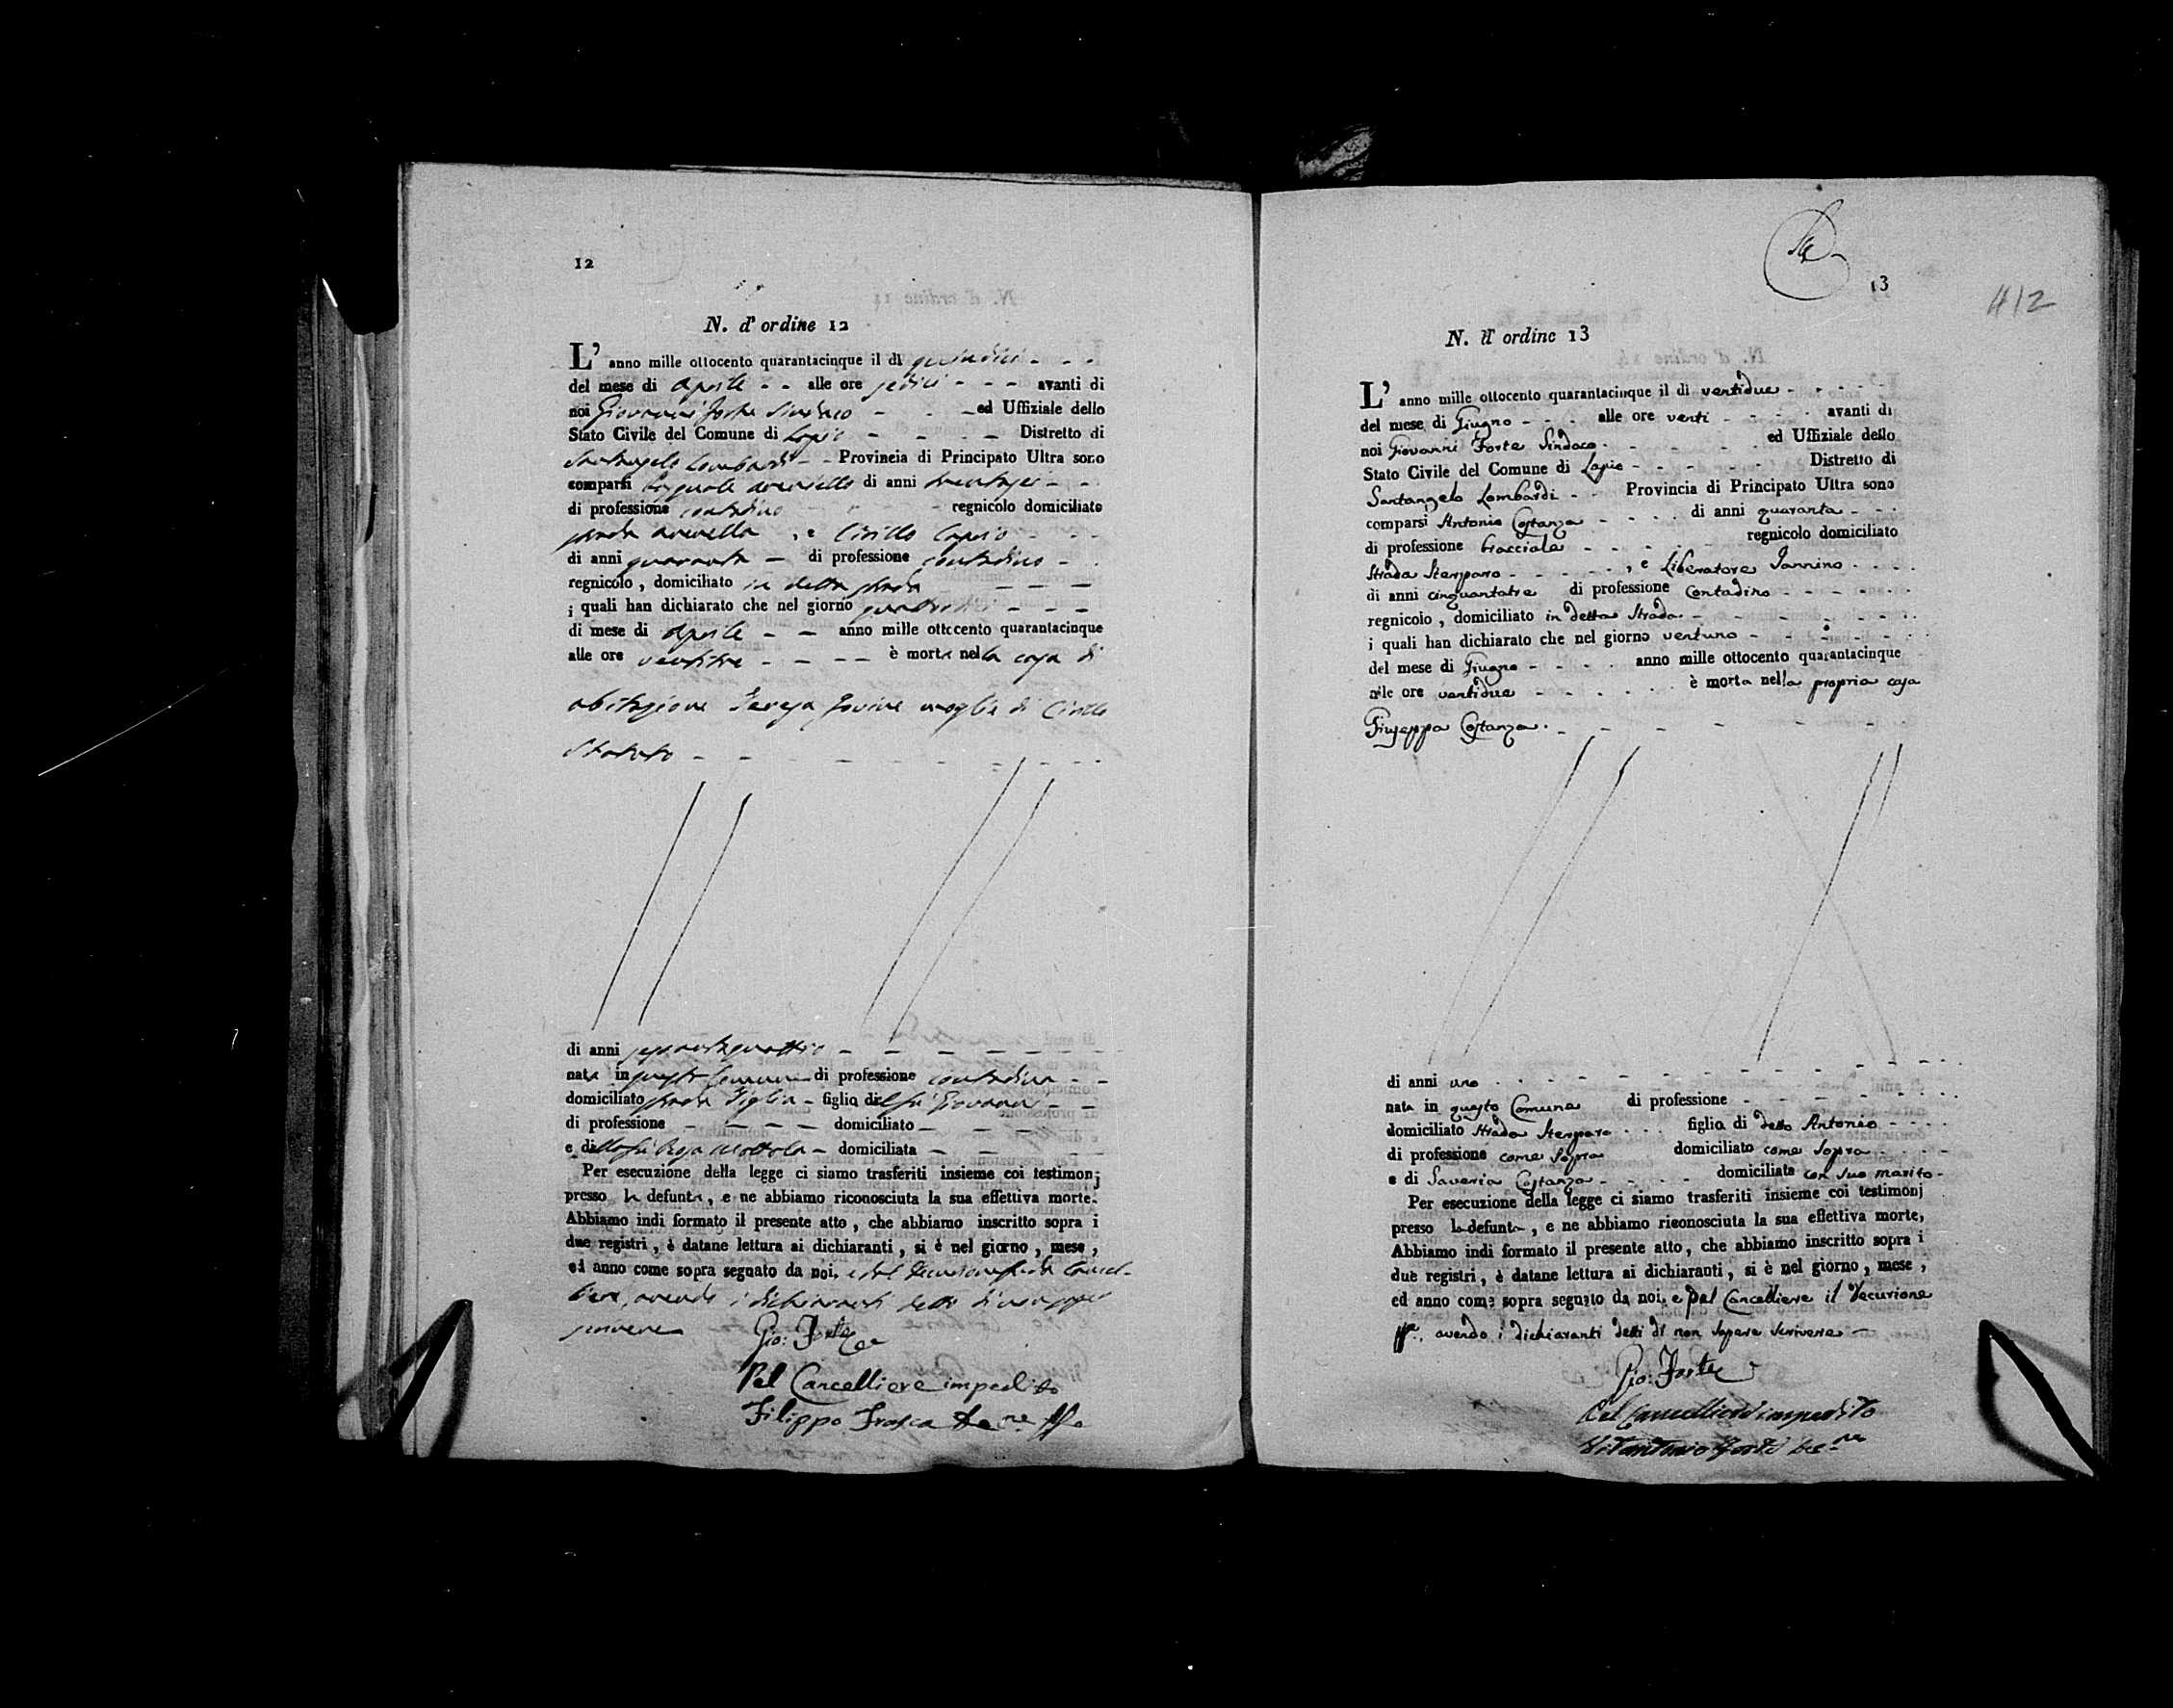 12
N. d' ordine 12
L' anno mille ottocento quarantacinque il dì quindici - - -
del mese di Aprile - - alle ore sedici - - - avanti di
noi Giovanni Forte Sindaco - - - ed Uffiziale dello
Stato Civile del Comune di Lapio - - - - Distretto di
Santangelo Lombardi - - Provincia di Principato Ultra sono
comparsi Pasquale di anni trentasei - -
di professione contadino - - - regnicolo domiciliato
strada , e Cirillo Caputo - - -
di anni quaranta - di professione contadino - -
regnicolo, domiciliato in detta strada - - -
i quali han dichiarato che nel giorno quattordici - - -
di mese di Aprile - - anno mille ottocento quarantacinque
alle ore ventitre - - - - è morta nella casa di
abitazione Teresa Iovine moglie di Cirillo
- - - - - - - - - -
di anni sessantaquattro - - - - - -
nata in questo Comune di professione contadina - -
domiciliato strada - figlia del fu Giovanni - -
di professione - - - - domiciliato - - -
e della fu Rosa Mottola - domiciliata - - -
Per esecuzione della legge ci siamo trasferiti insieme coi testimonj
presso la defunta, e ne abbiamo riconosciuta la sua effettiva morte.
Abbiamo indi formato il presente atto, che abbiamo inscritto sopra i
due registri, è datane lettura ai dichiaranti, si è nel giorno, mese,
ed anno come sopra segnato da noi, e dal Decurione Cancel-
liere, avendo i dichiaranti detto di non sapere
scrivere
Gio: Forte
Pel Cancelliere impedito
Filippo Frasca De.ne ff.
13
412
N. d' ordine 13
L' anno mille ottocento quarantacinque il dì ventidue - - - -
del mese di Giugno - - - alle ore venti - - - - avanti di
noi Giovanni Forte Sindaco - - - - - ed Uffiziale dello
Stato Civile del Comune di Lapio - - - - - Distretto di
Santangelo Lombardi - - Provincia di Principato Ultra sono
comparsi Antonio Costanza - - - - di anni quaranta - - -
di professione bracciale - - - - - regnicolo domiciliato
Strada Sterparo - - - - - , e Liberatore Iannino - - - -
di anni cinquantatre di professione Contadino - - - - -
regnicolo, domiciliato in detta Strada - - - - - - -
i quali han dichiarato che nel giorno ventuno - - - - - -
del mese di Giugno - - - - anno mille ottocento quarantacinque
alle ore ventidue - - - - - - è morta nella propria casa
Giuseppa Costanza - - - - - - -
di anni uno - - - - - - - - - - -
nata in questo Comune di professione - - - - - - -
domiciliato Strada Sterparo - - - figlia di detto Antonio - - - -
di professione come sopra domiciliato come sopra - - - -
e di Saveria Costanza - - - - domiciliata con suo marito -
Per esecuzione della legge ci siamo trasferiti insieme coi testimonj
presso la defunta, e ne abbiamo riconosciuta la sua effettiva morte,
Abbiamo indi formato il presente atto, che abbiamo inscritto sopra i
due registri, è datane lettura ai dichiaranti, si è nel giorno, mese,
ed anno come sopra segnato da noi, e Pel Cancelliere il Decurione
ff., avendo i dichiaranti detti di non sapere scrivere -
Gio: Forte
Pel Cancelliere impedito
Vitantonio Forte De.ne